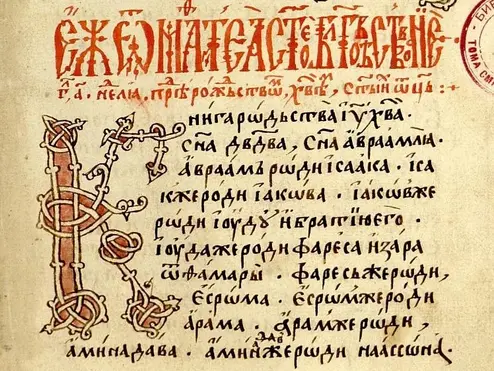 ЄЖЕ Ѿ МАТѲЕА С҃ТОЕ БЛГОВѢСТВОВАНЇЕ
Г҃Л А҃ НЕЛИ ПРѢ РОЖЬСТВѠМ Х҃ВѢ С҃ТЫИ ѠЦЬ :·
Книга рѡдьства і҃у х҃ва ·
с҃на дв҃два, с҃на авраамлѧ ·
авраамъ рѡди ісаака · іса
кже роди іакѡва · іакѡвже
рѡди іоуду и братїю его ·
іоуда же роди фареса и зара
ѿ фамары · фаресь же рѡди,
есрѡма · есрѡмже роди
арама · арамже рѡди,
аминадава · аминадав же рѡди наассѡна ·
БИБ
ТОМА